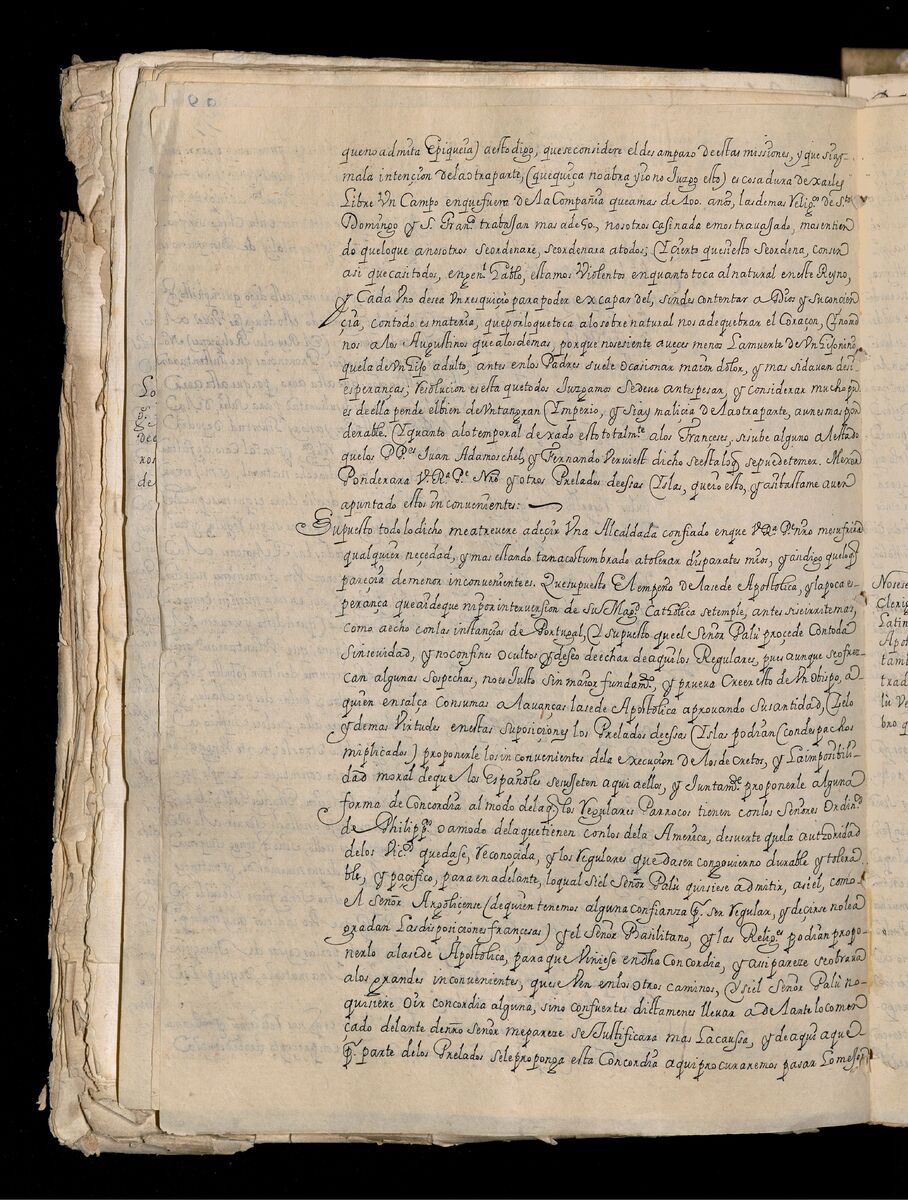 que no admita Epiqueia) a esto digo, que se considere el desamparo de estas missiones, y que si ay
mala intençion de la otra parte, (que quiça no abra y io no Juzgo esto) es cosa dura dexarles
Libre Vn Campo en que fuera de La Compañia que a mas de 100. anos, las demas Relig.s de S.to
Domingo y S. Fran.co trabajan mas ade 50, nosotros casi nada emos trauajado, mas entien
do que lo que a nosotros se ordenare, se ordenara a todos; Y cierto que si esto se ordena,
asi que casi todos, en gen.l hablo, estamos Violentos en quanto toca al natural en este Reyno,
y Cada Vno desea Vn resquiçio para poder excapar del, sin descontentar a Dios y su concien
çia, con todo es materia, que por lo que toca a lo sobre natural nos a de quebrar el Coraçon, y no me
nos a los Augustinos que a los demas, porque no se siente aueces menos La muerte de Vn hijo niño
que la de Vn hijo adulto, antes en los Padres suele ocasionar maior dolor, y mas si dauan
esperanças; Resolucion es esta que todos Juzgamos se deue antes pesar, y considerar mucho
es de ella pende el bien de Vn tan gran Imperio, y si ay malicia de La otra parte, aun es mas pon
derable. Y quanto a lo temporal dexado esto totalm.te a los Françeses, si sube alguno al estado
que los P.Pes Juan Adamo schel, y Fernando Verviest dicho se esta lo q se puede temer. Mexor
Ponderara V. R.a P.e Nro y otros Prelados de essas Islas, que io esto, y asi bastame auer
apuntado estos inconvenientes:
Supuesto todo lo dicho me atrevere a deçir Vna Alcaldada confiado en que V. R.a P.e nro me sufrira
qualquier neçedad, y mas estando tan acostumbrado a tolerar disparates mios, y asi digo que lo q
pareçia de menor inconveniente es. Que supuesto El empeño de La sede Apostolica, y la poca es-
perança que ai de que ni por intervension de su Mag.d Catholica se temple, antes si se irrite mas,
como a echo con las instançias de Portugal, Y supuesto que el Señor Palù procede Con toda
sinseridad, y no con fines ocultos y deseo de echar de aqui los Regulares, pues aunque se ofrez
can algunas sospechas, no es Justo sin maior fundam.to, y prueva Creer esto de Vn Obispo, a
quien ensalça con sumas alauanças la sede Apostolica aprouando su santidad, Zelo
y demas Virtudes en estas suposiçiones los Prelados de essas Islas podrian (con despachos
mi plicados) proponerle los inconvenientes de la execucion de Los decretos, y La imposibili-
dad moral de que Los Españoles se sujeten aqui a ellos, y Juntam.te proponerle alguna
forma de Concordia al modo de la q los Regulares Parrocos tienen con los Señores Ordin.os
de Philipp.s o a modo de la que tienen con los de la America, de suerte que la authoridad
de los Vic.s quedase, reconocida, y los Regulares quedasen con govierno durable y tolera
ble, y paçifico, para en adelante, lo qual si el Señor Palù quisiese admitir, asi el, como
el Señor Argoliçense (de quien tenemos alguna confiança p.r ser Regular, y deçirse no le a
gradan Las disposiciones françesas) y el Señor Basilitano, y las Relig.es podian propo-
nerlo a la sede Apostolica, para que Viniese en dha Concordia, y asi pareze se obiara
a los grandes inconvenientes, que se Ven en los otros caminos, Y si el Señor Palù no
quisiere Oir concordia alguna, sino con fuertes dictamenes lleuar adelante lo comen
çado delante de nro señor me pareze se Justificara mas La caussa, y de aqui a que
p.r parte de los Prelados se le proponga esta Concordia aqui procuraremos pasar Lo mejor